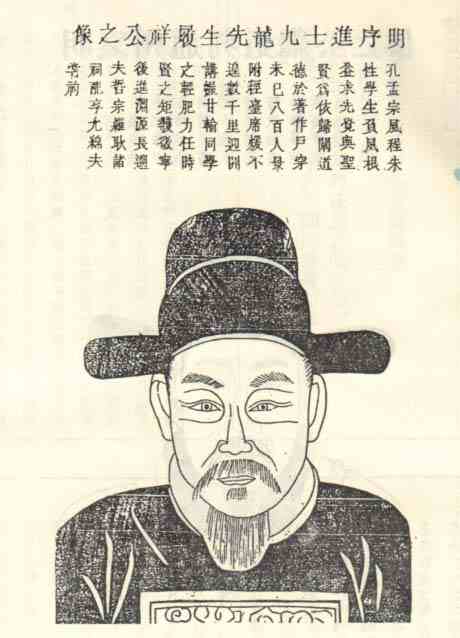 明序進士九龍先生履祥公之像
孔孟宗風程朱
性學生負夙根
求先覺與聖
賢為依歸闡道
德於著作戶穿
未已八百人景
附經臺席不
遑數千里迎
講同學
之輕肥力任時
賢之矩矱
後進淵源長遡
夫哲宗羅耿諸
祠享尤綿夫